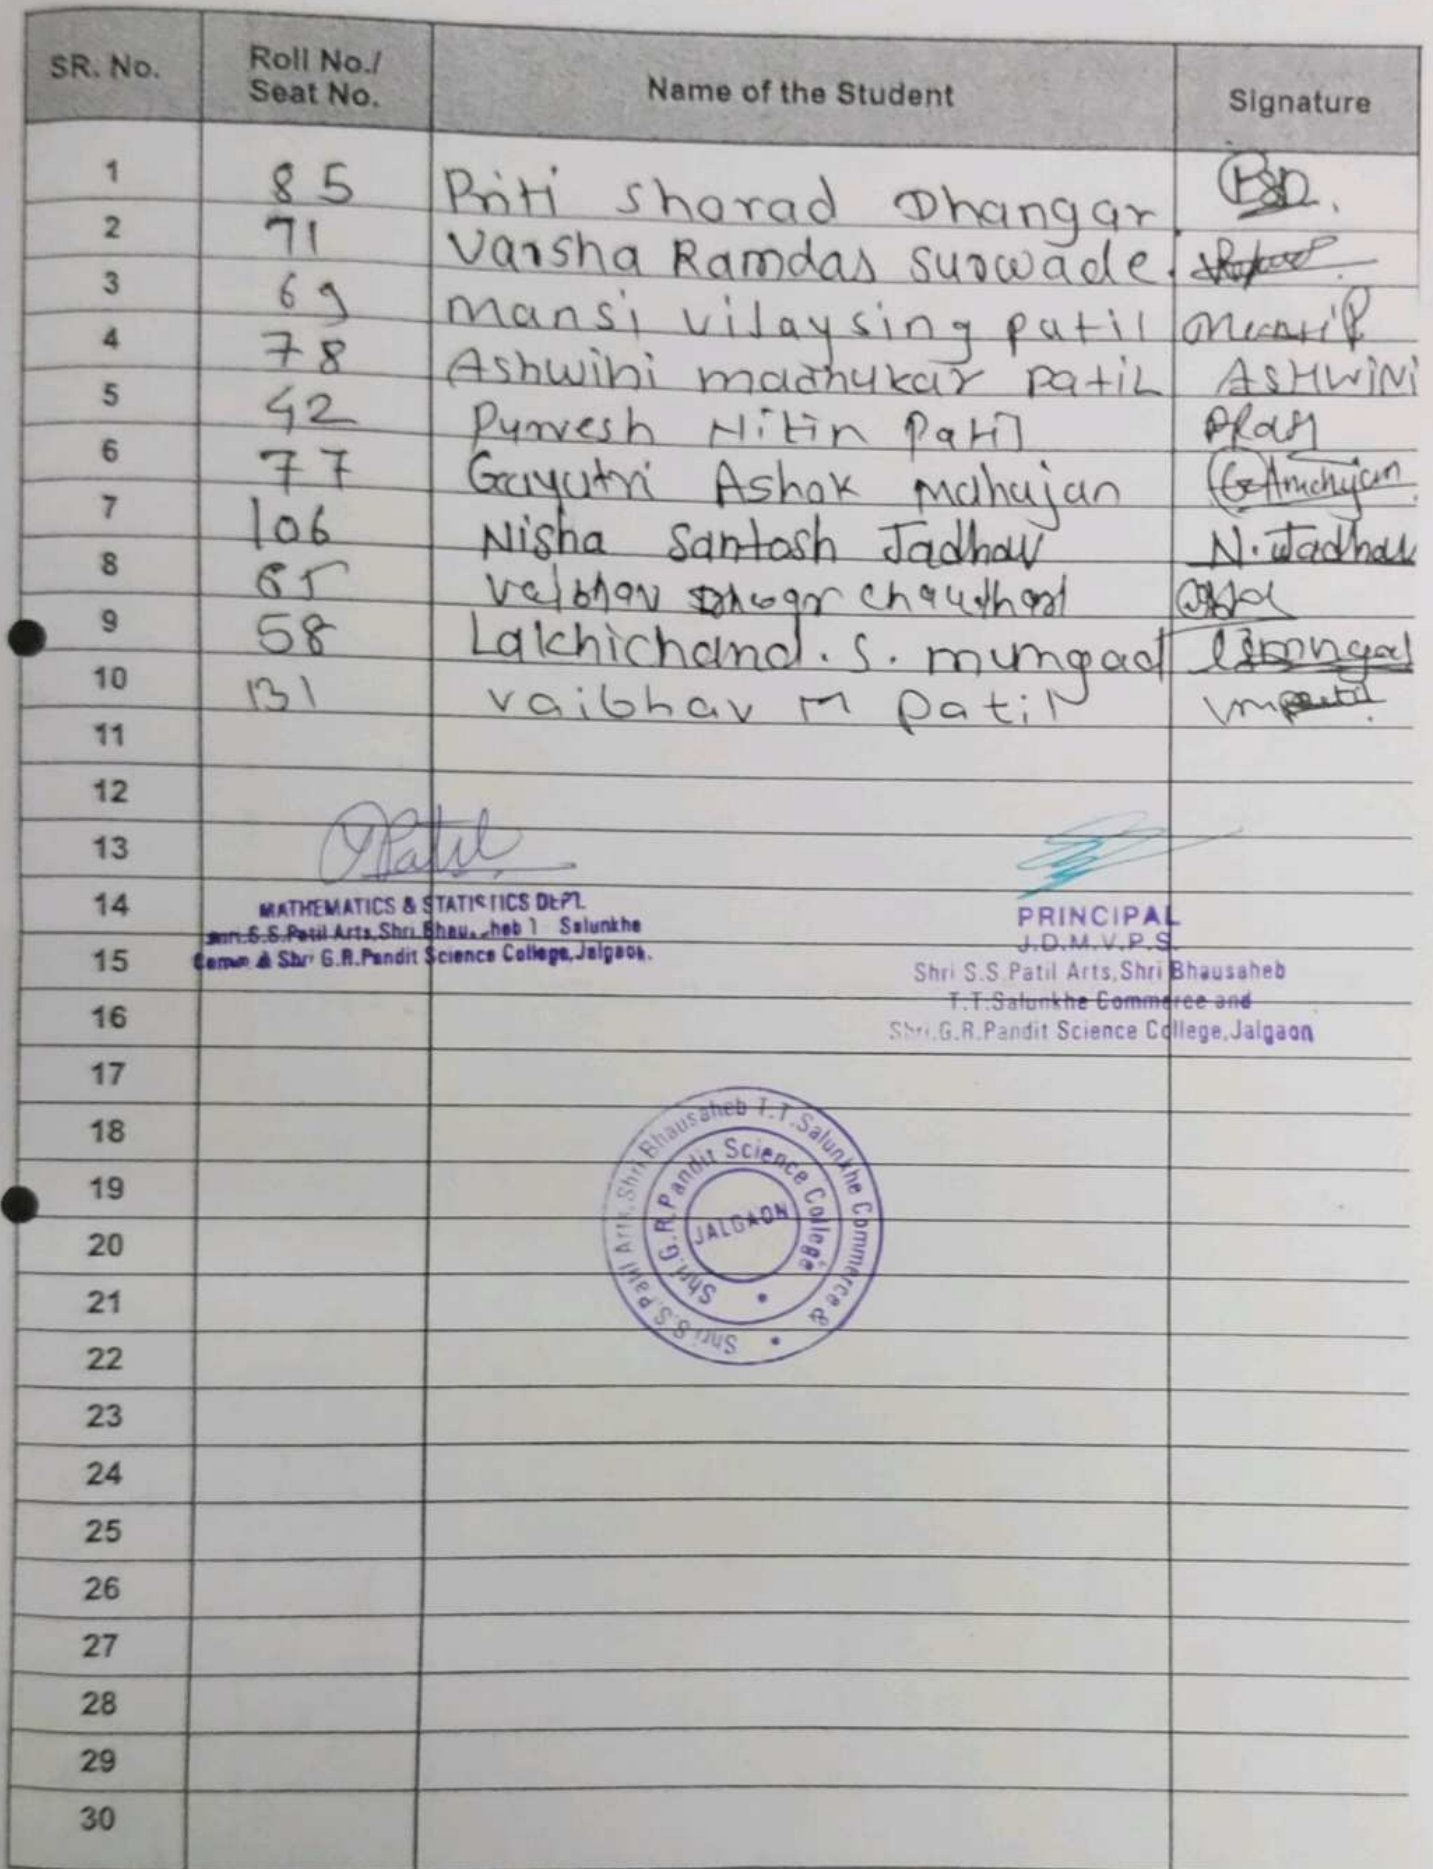 SR. No. Roll No./ Seat No. Name of the Student Signature
1 85 Priti Sharad Dhangar PSD.
2 71 Varsha Ramdas Surwade.
3 69 Mansi Vijaysing patil
4 78 Ashwini madhukar patil ASHWINI
5 42 Purvesh Nitin Patil
6 77 Gayatri Ashok Mahajan GAmahajan
7 106 Nisha Santosh Jadhav N. Jadhav
8 65 Vaibhav chaudhari
9 58 Lakhichand. S. mungad lsmungad
10 131 vaibhav M patil vmpatil
11
12
13 Patil
14 MATHEMATICS & STATISTICS DEPT. PRINCIPAL
Shri.S.S.Patil Arts,Shri.Bhausaheb T Salunkhe J.D.M.V.P.S.
15 Comm & Shri G.R.Pandit Science College,Jalgaon. Shri S.S.Patil Arts,Shri Bhausaheb
T.T.Salunkhe Commerce and
16 Shri.G.R.Pandit Science College,Jalgaon
17
18 Shri S.S.Patil Arts,Shri Bhausaheb T.T.Salunkhe Commerce &
19 Shri.G.R.Pandit Science College
20 JALGAON
21
22
23
24
25
26
27
28
29
30